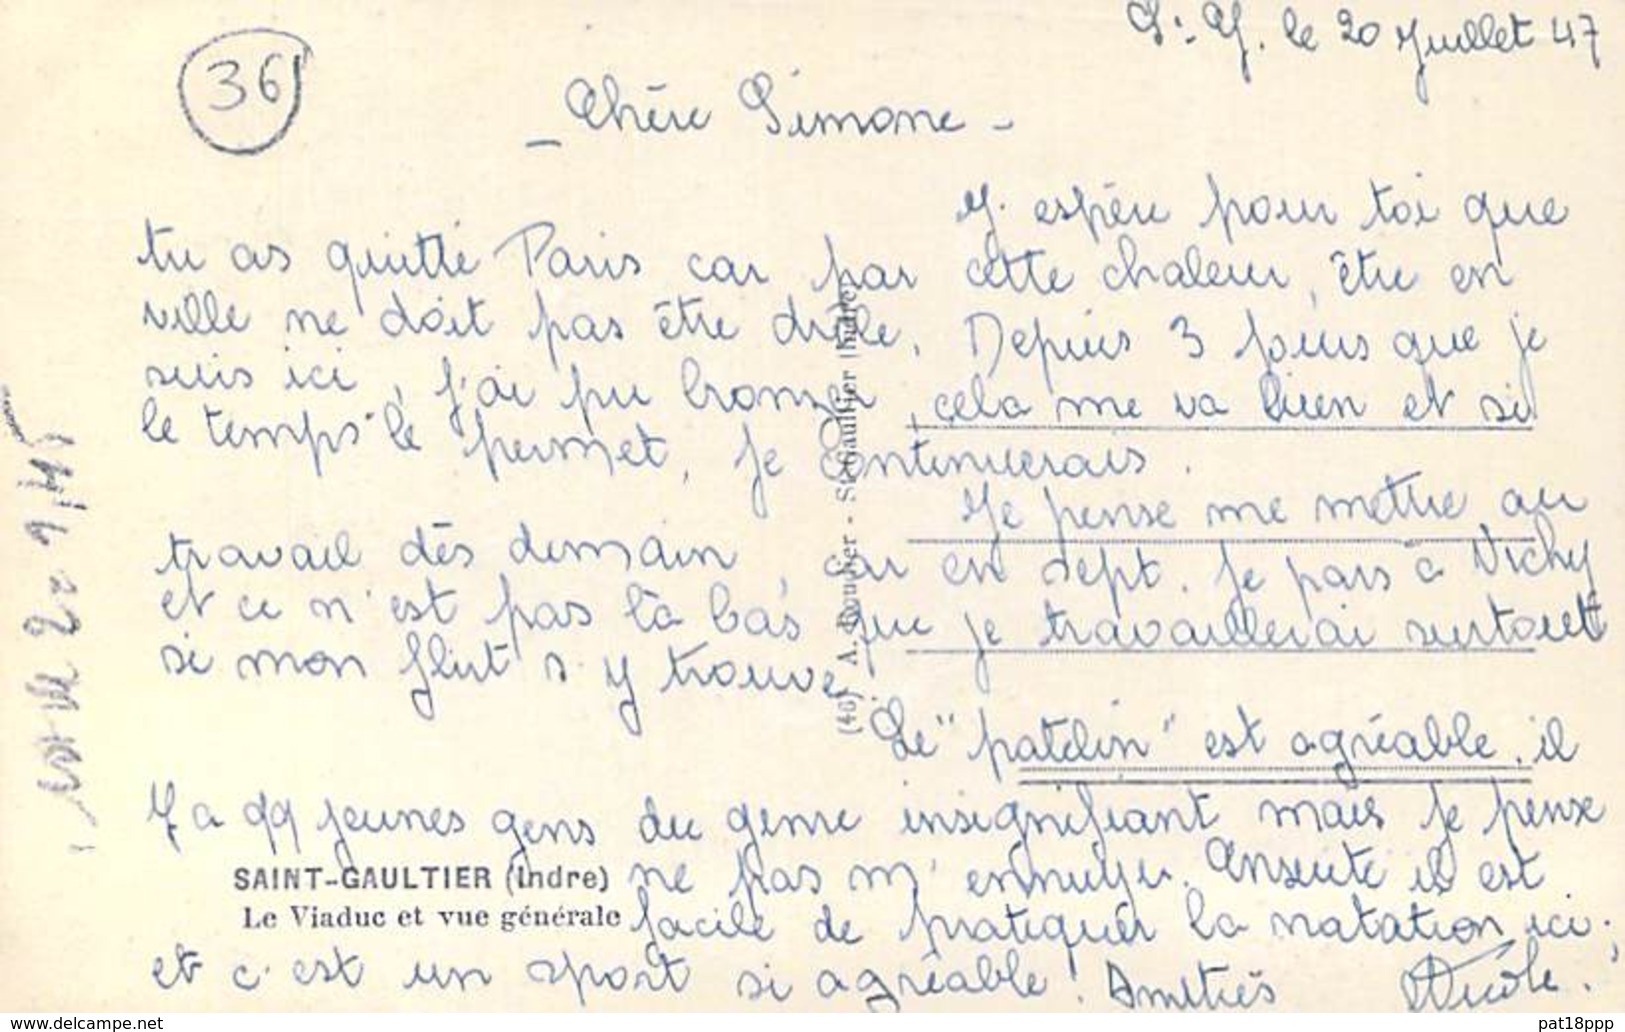 36
S. G. le 20 Juillet 47
- Chère Simone -
J'espère pour toi que
tu as quitté Paris car par cette chaleur, être en
ville ne doit pas être drôle. Depuis 3 jours que je
suis ici, j'ai pu bronzer, cela me va bien et si
le temps le permet, je continuerais.
Je pense me mettre au
travail dès demain, car en sept. je pars à Vichy
et ce n'est pas là bas que je travaillerai surtout
si mon flirt s'y trouve.
Le "patelin" est agréable. il
Y a qq jeunes gens du genre insignifiant mais je pense
ne pas m'ennuyer. Ensuite il est
facile de pratiquer la natation ici.
et c'est un sport si agréable! Amitiés
Nicole.
SAINT-GAULTIER (Indre)
Le Viaduc et vue générale
(46) A. Roudier - St-Gaultier (Indre)
www.delcampe.net
pat18ppp